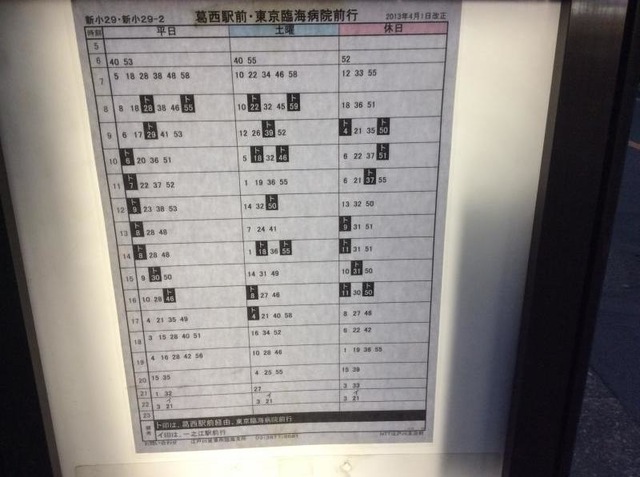 新小29・新小29-2 葛西駅前・東京臨海病院前行 2013年4月1日改正
時刻 平日 土曜 休日
5
6 40 53 40 55 52
7 5 18 28 38 48 58 10 22 34 46 58 12 33 55
ト ト ト ト
8 8 18 28 38 46 55 10 22 32 45 59 18 36 51
ト ト ト ト
9 6 17 29 41 53 12 26 39 52 4 21 35 50
ト ト ト ト
10 6 20 36 51 5 18 32 46 6 22 37 51
ト ト
11 7 22 37 52 1 19 36 55 6 21 37 55
ト ト
12 9 23 38 53 14 32 50 13 32 50
ト ト
13 8 28 48 7 24 41 9 31 51
ト ト ト ト
14 8 28 48 1 18 36 55 11 31 51
ト ト
15 9 30 50 14 31 49 10 31 50
ト ト ト ト
16 10 28 46 8 27 46 11 30 50
ト
17 4 21 35 49 4 21 40 58 8 27 48
18 3 15 28 40 51 16 34 52 6 22 42
19 4 16 28 42 56 10 28 46 1 19 36 55
20 15 35 4 25 55 15 39
21 1 32 27 3 33
イ イ イ
22 3 21 3 21 3 21
23
ト印は、葛西駅前経由、東京臨海病院前行
イ印は、一之江駅前行
お問い合わせ